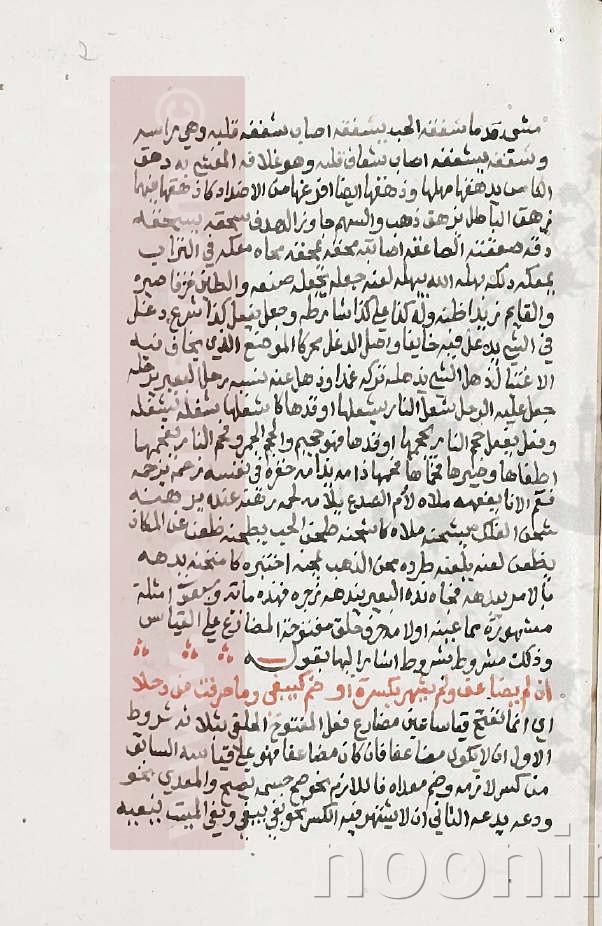 شغفه الحب يشغفه اصاب شغفه قلبه وهي راسه
وشغفه يشغفه اصاب شغاف قلبه وهو غلافه
الكاس يدهقها ملها ودهقها ايضا افرغها من الاضداد كازدهقها
زهق الباطل يزهق ذهب والسهم جاوز الهدف سحقه يسحقه
دقه صعقته الصاعقة اصابته محقه يمحقه محاه معكه في التراب
يمعكه دلكه بهله الله يبهله لعنه جعله يجعله صنعه والطين خزفا صيره
والقايم زيدا ظنه وله كذا علي كذا شارطه وجعل يفعل كذا شرع دغل
في الشي يدغل فيه واصل الدغل محركا الموضع الذي يخاف فيه
الاغتيال ذهل الشي يذهله تركه عمدا وذهل عنه نسيه رحل البعير يرحله
جعل عليه الرحل شعل النار يشعلها اوقدها كاشعلها شغله يشغله
وفعل يفعل جحم النار يجحمها اوقدها فهو جحيم والجحم الجمر وفحم النار يفحمها
اطفاها وصيرها فحما
فعم الانا يفعمه ملاه لام الصدع يلامه لحمه رهنه عنده يرهنه
شحن الفلك يشحنه ملاه كاشحنه طحن الحب يطحنه ظعن عن المكان
يظعن لعنه يلعنه طرده محن الذهب يمحنه اختبره كامتحنه بدهه
بالامر يبدهه فجاه نده البعير يندهه زجره فهذه ماية امثلة
مشهورة مما عينه او لامه حرف حلق مفتوحة المضارع علي القياس
وذلك مشروط بشروط اشار اليها بقوله
ان لم يضاعف ولم يشهر بكسرة او ضم كيبغي وما صرفت من دخلا
اي انما تفتح قياسا عين مضارع فعل المفتوح الحلقي بثلاثة شروط
الاول ان لا يكون مضاعفا فان كان مضاعفا فهو علي قياسه السابق
من كسر لازمه وضم معداه فاللازم نحو صح جسمه يصح والمعدي نحو
دعه يدعه الثاني ان لا يشتهر فيه الكسر نحو بغي يبغي ونعي الميت ينعيه
noonin